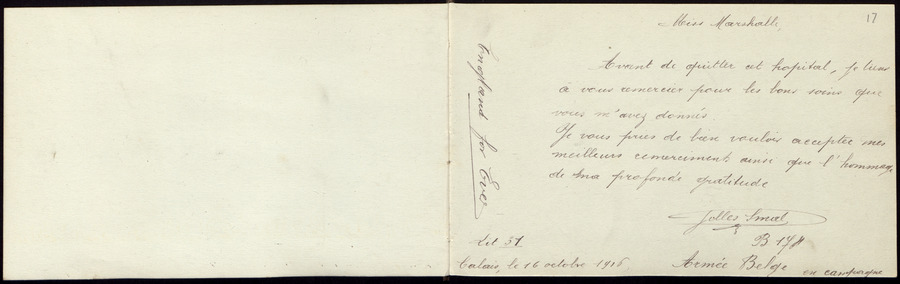 17
Miss Marshall,
Avant de quitter cet hopital, je tiens
à vous remercier pour les bons soins que
vous m'avez donnés.
Je vous pries de bien vouloir accepter mes
meilleurs remerciments ainsi que l'hommage
de ma profonde gratitude
Smal
Lit 31
Calais, le 16 octobre 1916
Armée Belge en campagne
England for Ever